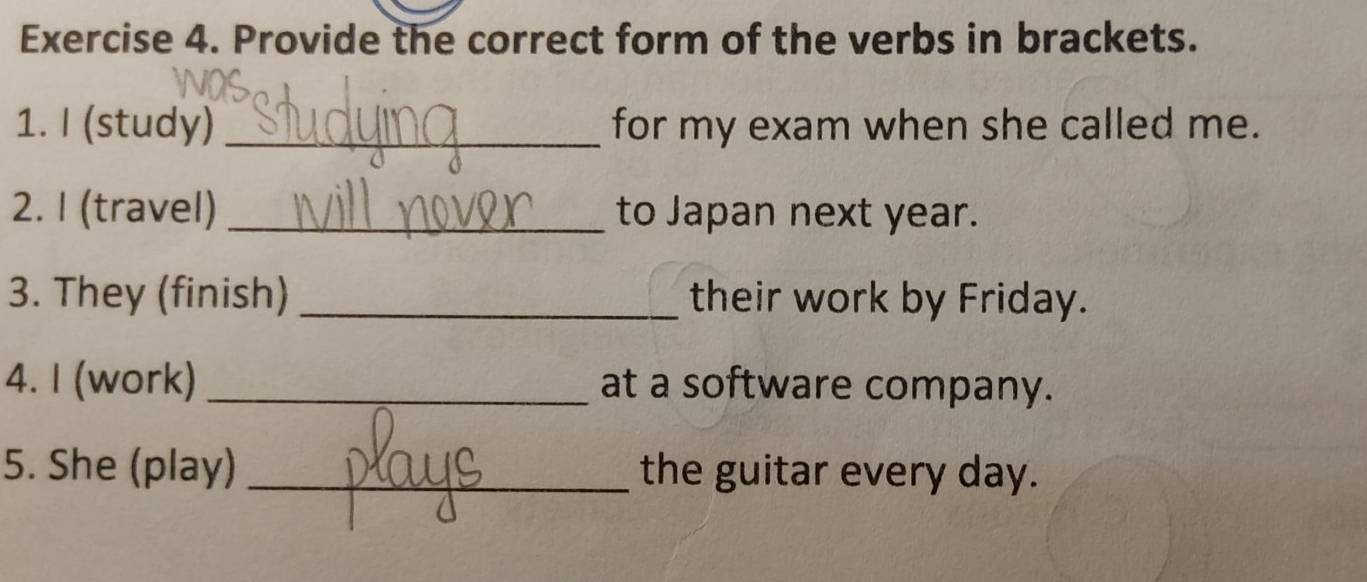 Exercise 4. Provide the correct form of the verbs in brackets.
1. I (study) was studying for my exam when she called me.
2. I (travel) will never to Japan next year.
3. They (finish) ____________ their work by Friday.
4. I (work) ____________ at a software company.
5. She (play) plays the guitar every day.